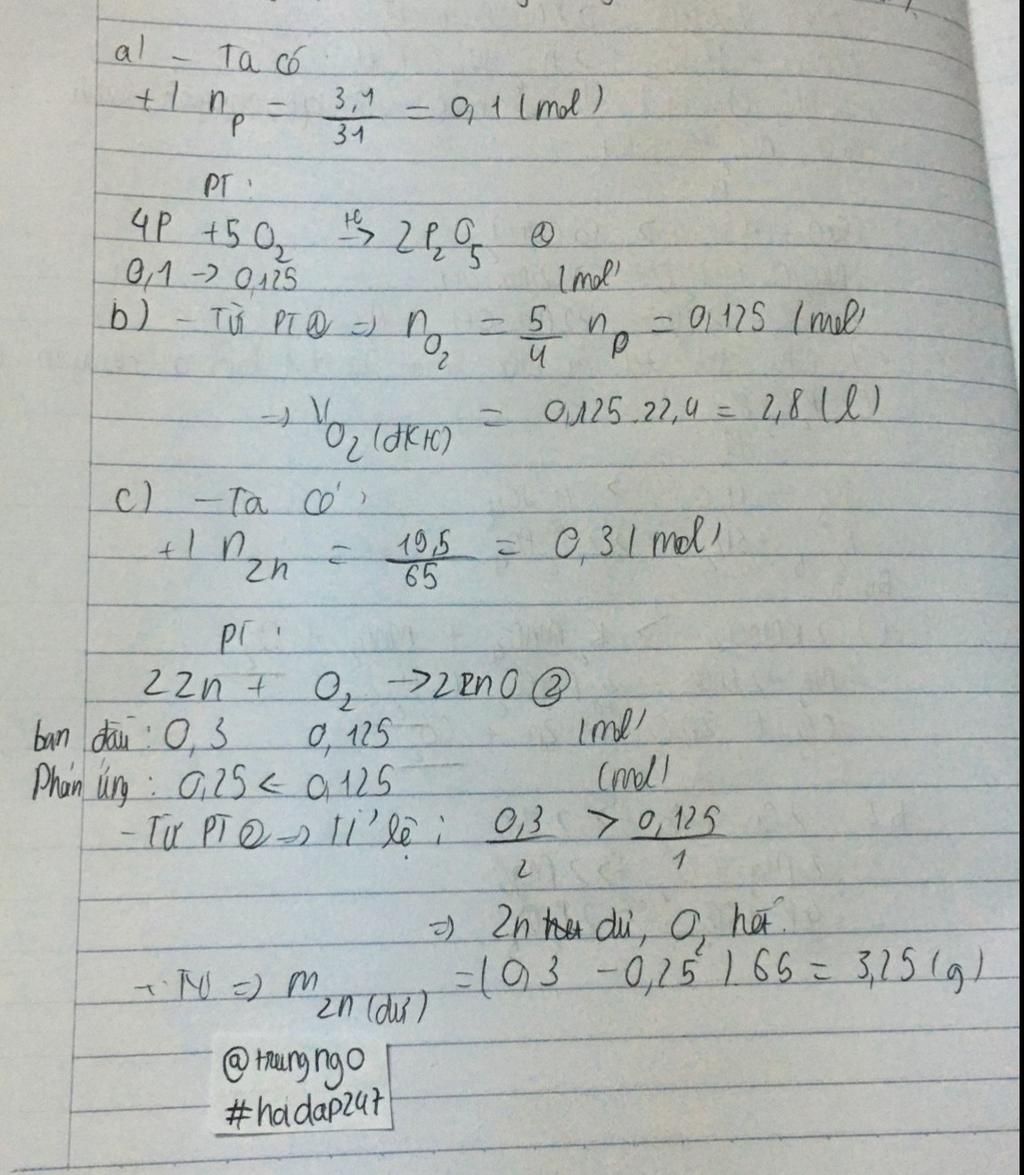 a) - Ta có
+) n_P = 3,1/31 = 0,1 (mol)
PT:
4P + 5O₂ →(t°) 2P₂O₅ ①
0,1 → 0,125 (mol)
b) - Từ PT① => n_O₂ = 5/4 n_P = 0,125 (mol)
=> V_O₂(đktc) = 0,125.22,4 = 2,8 (l)
c) - Ta có:
+) n_Zn = 19,5/65 = 0,3 (mol)
PT:
2Zn + O₂ → 2ZnO ②
ban đầu: 0,3 0,125 (mol)
Phản ứng: 0,25 < 0,125 (mol)
- Từ PT② => Tỉ lệ: 0,3/2 > 0,125/1
=> Zn dư, O₂ hết.
=> m_Zn(dư) = (0,3 - 0,25).65 = 3,25 (g)
@trungngo
#hoidap247